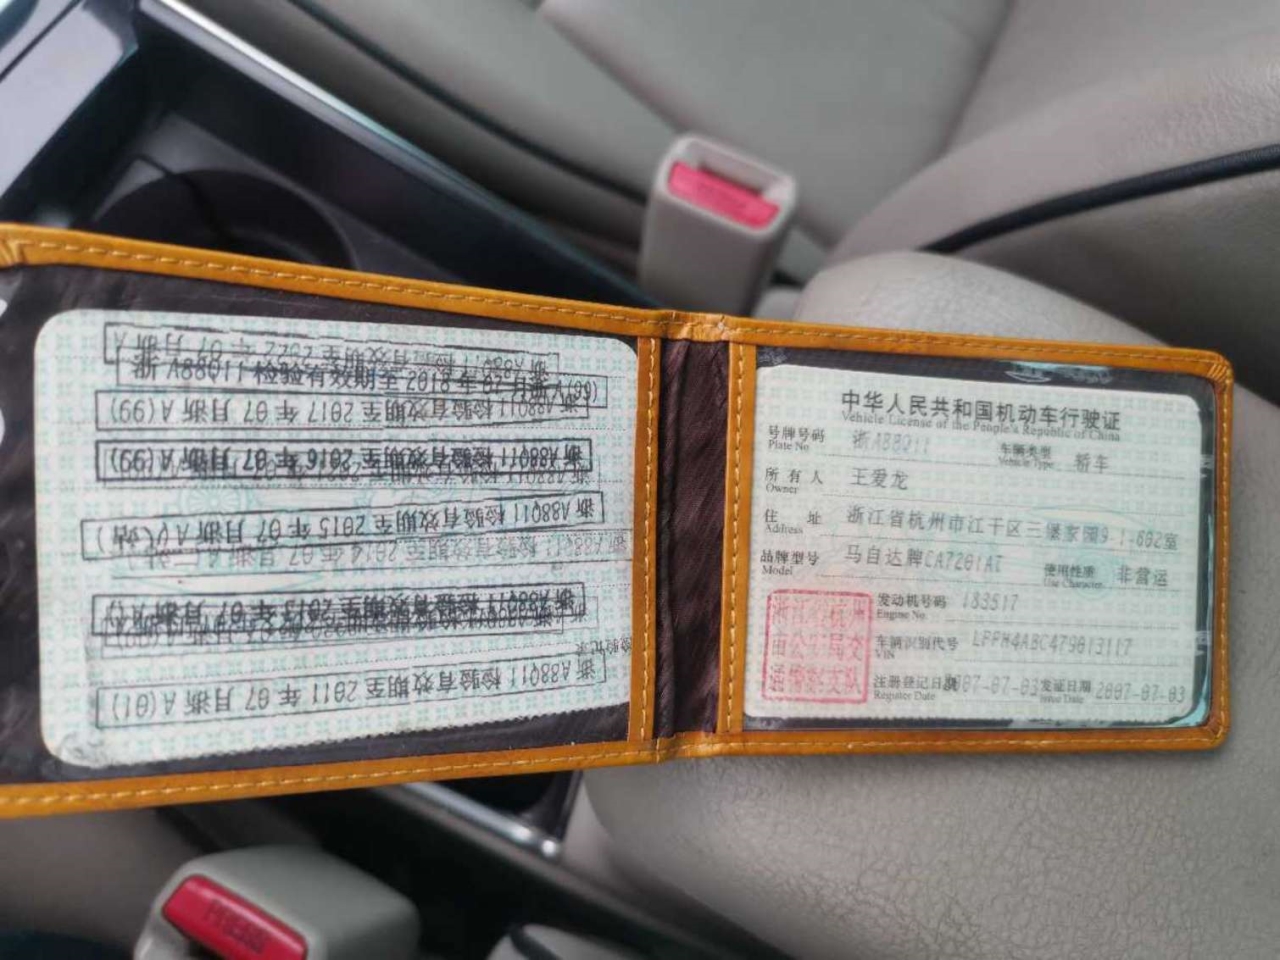 浙A88Q11 检验有效期至2022年07月浙A
浙A88Q11 检验有效期至2018年07月浙A(99)
浙A88Q11 检验有效期至2017年07月浙A(99)
浙A88Q11 检验有效期至2016年07月浙A(99)
浙A88Q11 检验有效期至2015年07月浙A
浙A88Q11 检验有效期至2014年07月浙A
检验记录
浙A88Q11 检验有效期至2011年07月浙A(01)
中华人民共和国机动车行驶证
Vehicle License of the People's Republic of China
号牌号码 浙A88Q11 车辆类型 轿车
Plate No Vehicle Type
所有人 王爱龙
Owner
住址 浙江省杭州市江干区三堡家园9-1-602室
Address
品牌型号 马自达牌CA7201AT 使用性质 非营运
Model Use Character
发动机号码 183517
Engine No.
车辆识别代号 LFPH4ABC479013117
VIN
注册登记日期 2007-07-03 发证日期 2007-07-03
Register Date Issue Date
浙江省杭州
市公安局交
通警察支队
PRESS